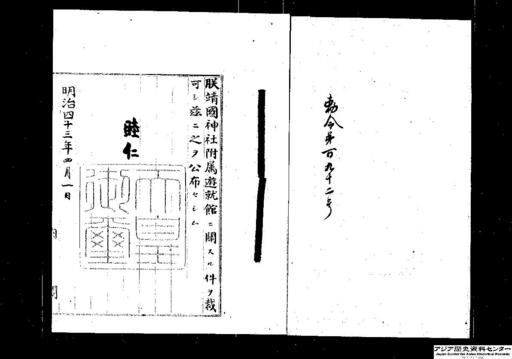 勅令第百九十二号
朕靖國神社附属遊就館ニ關スル件ヲ裁
可シ茲ニ之ヲ公布セシム
睦仁
天皇御璽
明治四十三年四月一日
内閣
アジア歴史資料センター
Japan Center for Asian Historical Records